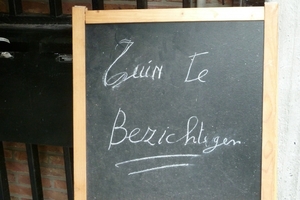 Tuin te
Bezichtigen